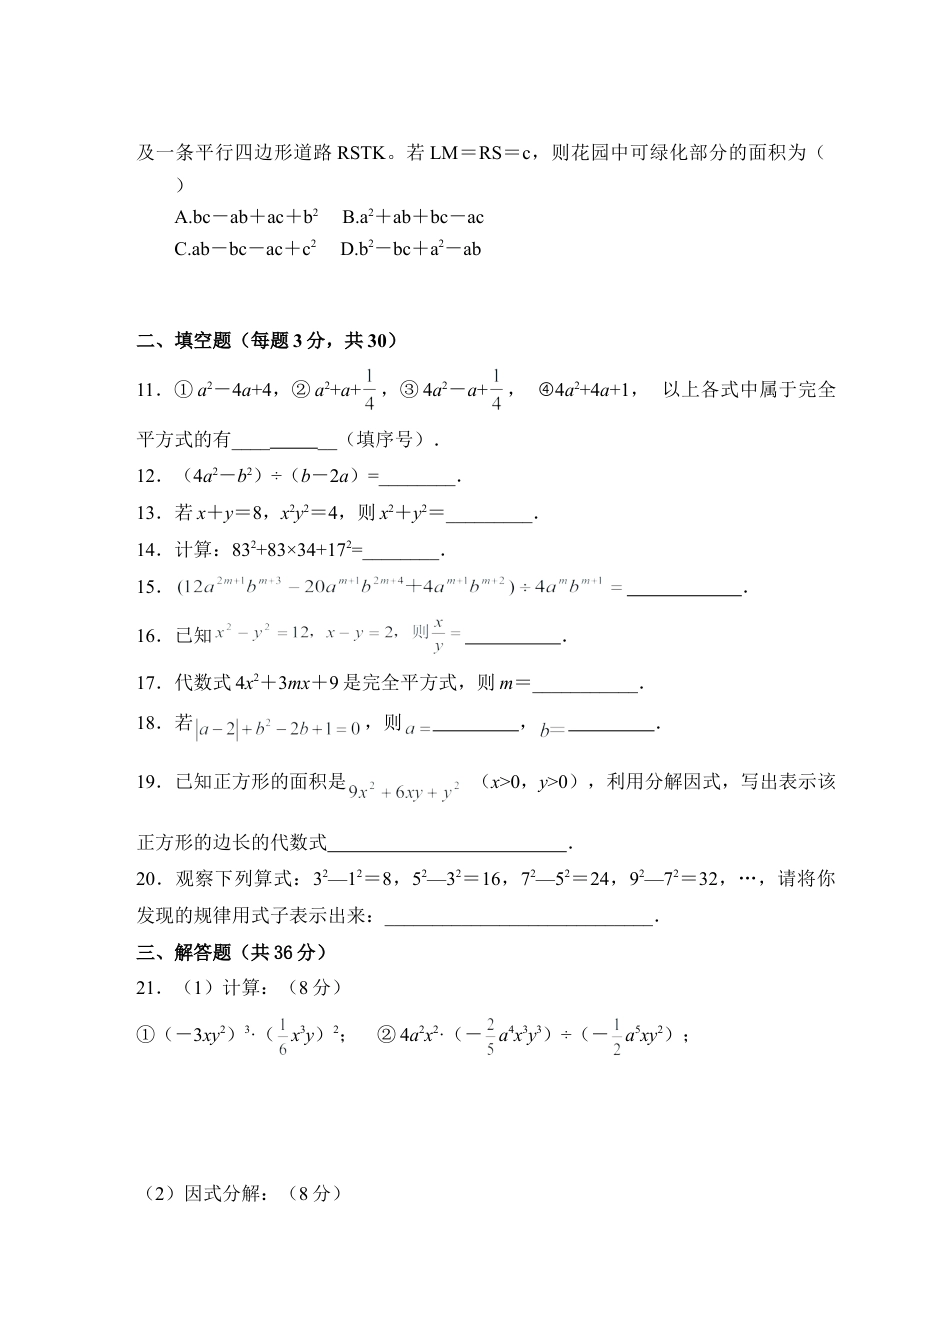 及一条平行四边形道路 RSTK。若 LM＝RS＝c，则花园中可绿化部分的面积为（
）
A.bc－ab＋ac＋b² B.a²＋ab＋bc－ac
C.ab－bc－ac＋c² D.b²－bc＋a²－ab
二、填空题（每题 3 分，共 30）
11．① a²－4a+4，② a²+a+1/4，③ 4a²－a+1/4， ④4a²+4a+1， 以上各式中属于完全
平方式的有___________（填序号）.
12．（4a²－b²）÷（b－2a）=________.
13．若 x＋y＝8，x²y²＝4，则 x²＋y²＝_________.
14．计算：83²+83×34+17²=________.
15．(12a^{2m+1}b^{m+3}－20a^{m+1}b^{2m+4}＋4a^{m+1}b^{m+2})÷4a^{m}b^{m+1}＝____________.
16．已知x²－y²＝12，x－y＝2，则x/y＝__________.
17．代数式 4x²＋3mx＋9 是完全平方式，则 m＝___________.
18．若|a－2|＋b²－2b＋1＝0，则a＝_________，b＝_________.
19．已知正方形的面积是9x²＋6xy＋y² （x>0，y>0），利用分解因式，写出表示该
正方形的边长的代数式_________________________.
20．观察下列算式：3²—1²＝8，5²—3²＝16，7²—5²＝24，9²—7²＝32，…，请将你
发现的规律用式子表示出来：____________________________.
三、解答题（共 36 分）
21．（1）计算：（8 分）
①（－3xy²）³·（1/6x³y）²； ② 4a²x²·（－2/5a⁴x³y³）÷（－1/2a⁵xy²）；
（2）因式分解：（8 分）